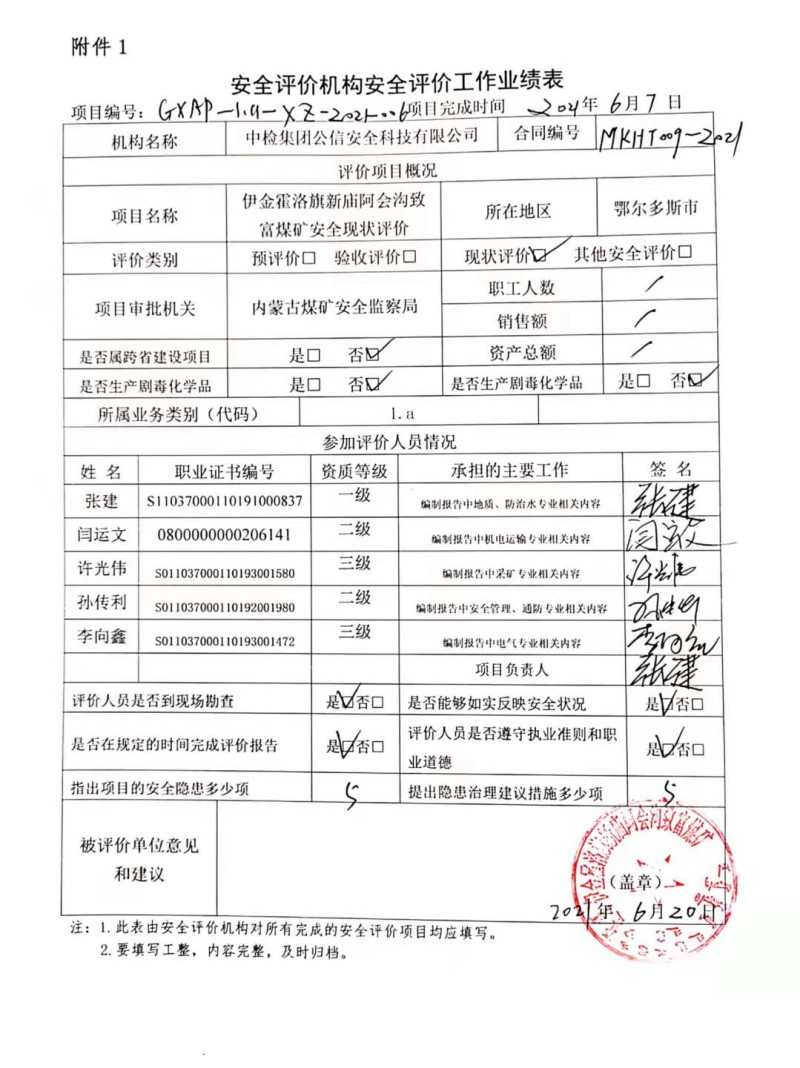 附件 1
安全评价机构安全评价工作业绩表
项目编号：GXAP-1.a-XZ-2021-006 项目完成时间 2021年 6月 7日
机构名称 中检集团公信安全科技有限公司 合同编号 MKHT009-2021
评价项目概况
项目名称 伊金霍洛旗新庙阿会沟致富煤矿安全现状评价 所在地区 鄂尔多斯市
评价类别 预评价□ 验收评价□ 现状评价☑ 其他安全评价□
项目审批机关 内蒙古煤矿安全监察局 职工人数 /
销售额 /
是否属跨省建设项目 是□ 否☑ 资产总额 /
是否生产剧毒化学品 是□ 否☑ 是否生产剧毒化学品 是□ 否☑
所属业务类别（代码） 1.a
参加评价人员情况
姓 名 职业证书编号 资质等级 承担的主要工作 签 名
张建 S11037000110191000837 一级 编制报告中地质、防治水专业相关内容 张建
闫运文 0800000000206141 二级 编制报告中机电运输专业相关内容 闫运文
许光伟 S011037000110193001580 三级 编制报告中采矿专业相关内容 许光伟
孙传利 S011037000110192001980 二级 编制报告中安全管理、通防专业相关内容 孙传利
李向鑫 S011037000110193001472 三级 编制报告中电气专业相关内容 李向鑫
项目负责人 张建
评价人员是否到现场勘查 是☑否□ 是否能够如实反映安全状况 是☑否□
是否在规定的时间完成评价报告 是☑否□ 评价人员是否遵守执业准则和职业道德 是☑否□
指出项目的安全隐患多少项 5 提出隐患治理建议措施多少项 5
被评价单位意见
和建议
（盖章）
2021年 6月20日
注：1.此表由安全评价机构对所有完成的安全评价项目均应填写。
2.要填写工整，内容完整，及时归档。